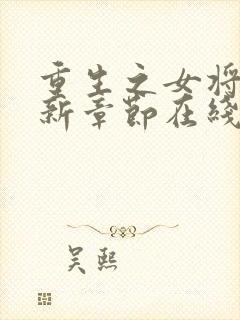 重生之女将
新章节在线
吴熙